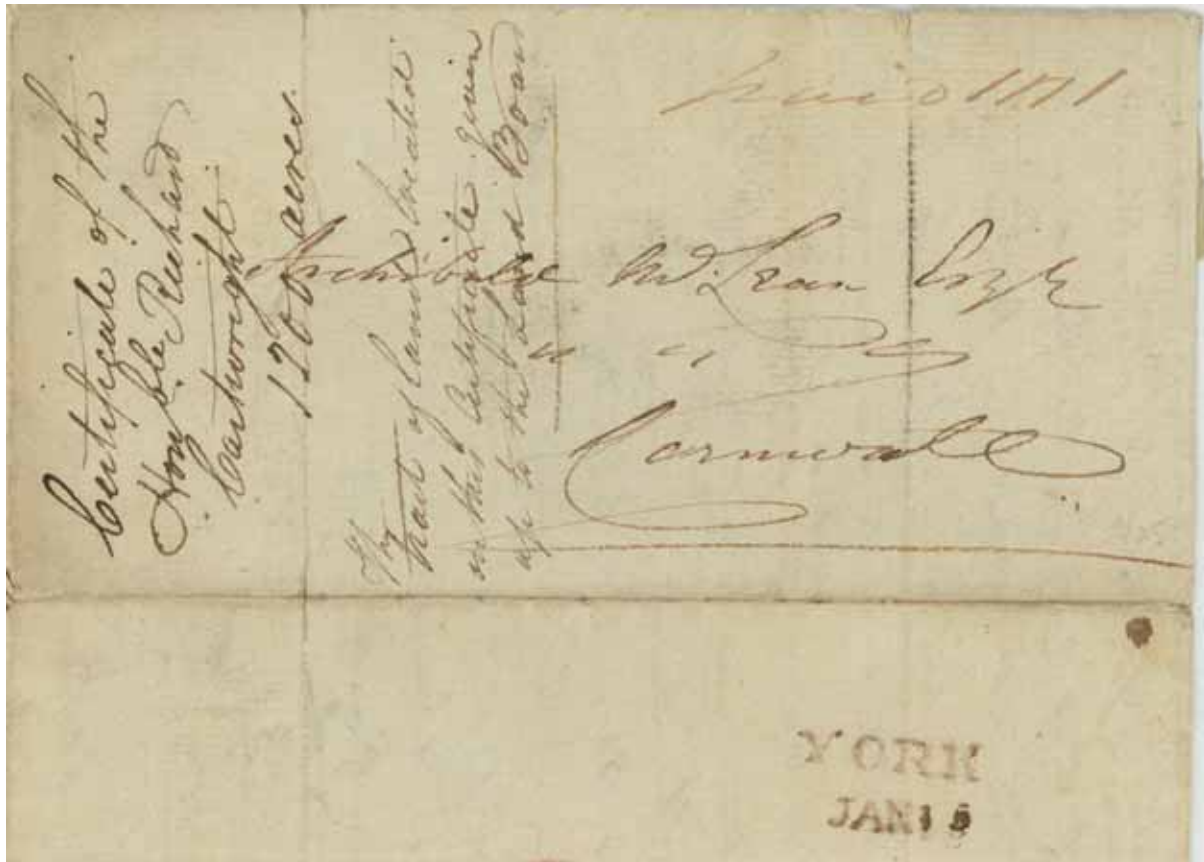 Certificate of the
Honble Richard
Cartwright
1200 acres.
tract of land located
in this Certificate given
up to the Land Board
paid
Archibald McLean Esqr
" " "
Cornwall
YORK
JAN 15